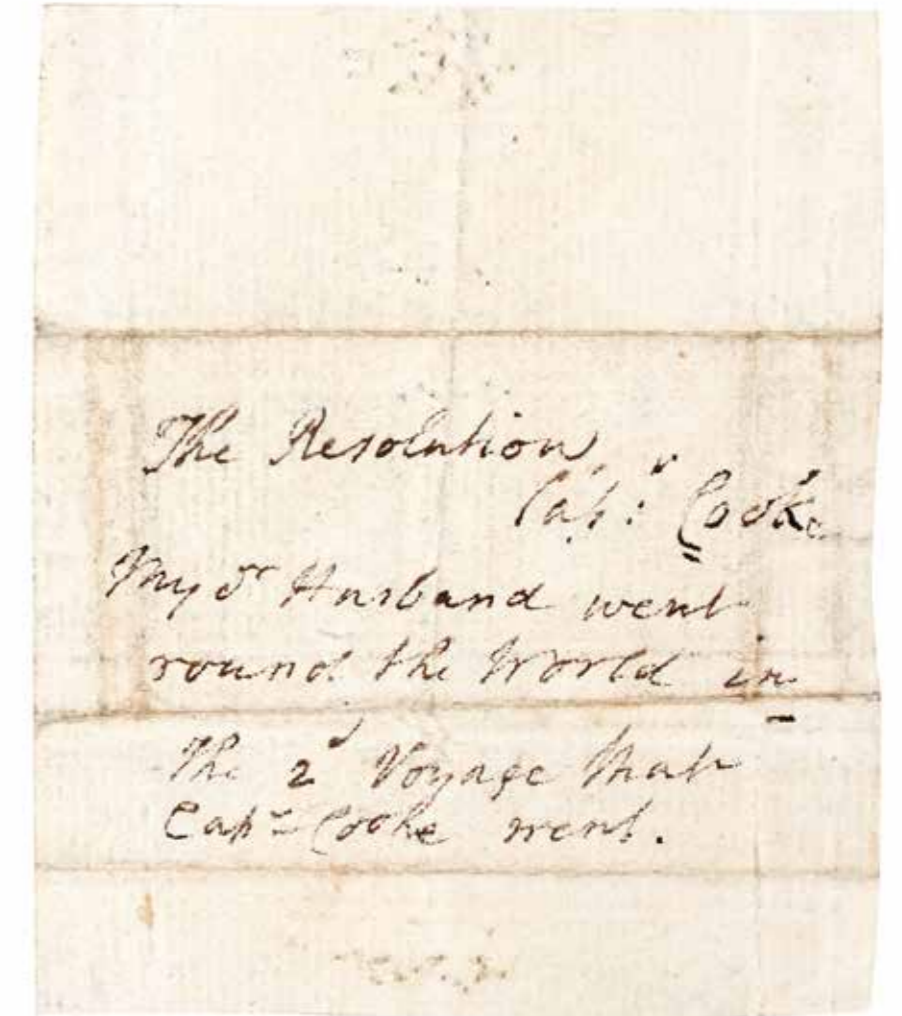 The Resolution
Capt: Cooke
My dr Husband went
round the World in
The 2d Voyage that
Capt Cooke went.